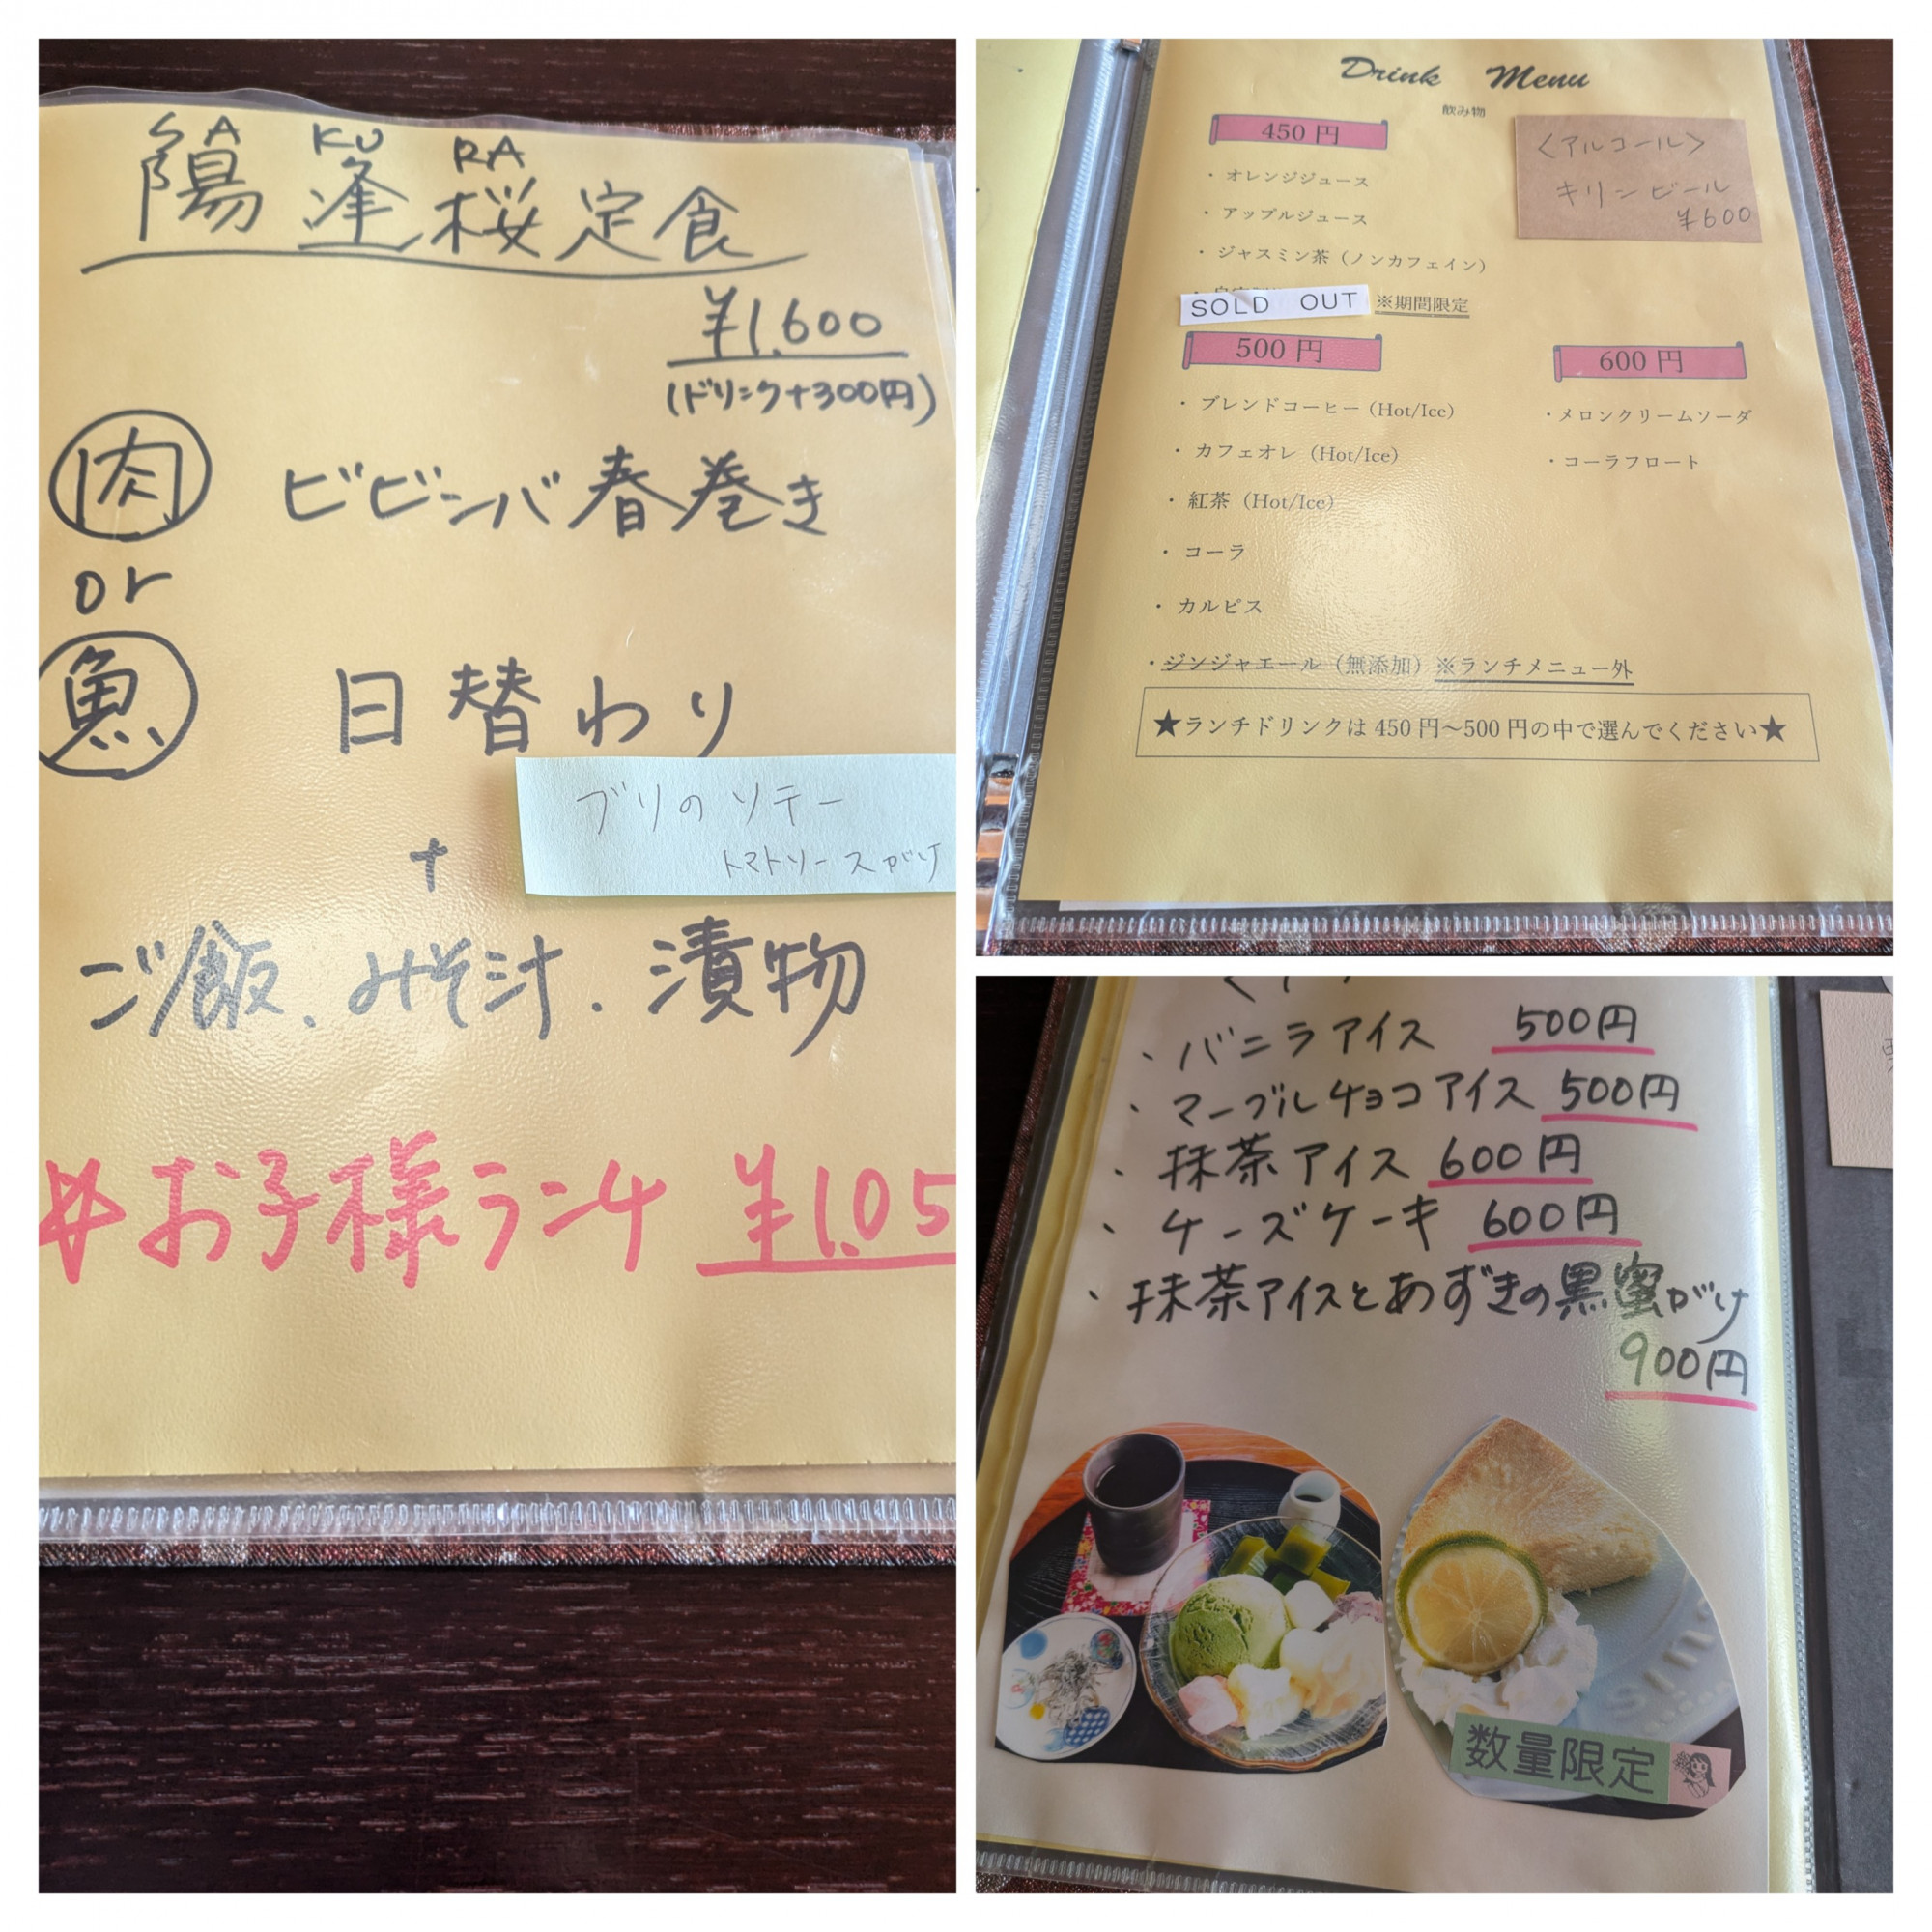 SA KU RA
陽逢桜定食
¥1,600
(ドリンク+300円)
肉 ビビンバ春巻き
or
魚 日替わり
ブリのソテー
トマトソースがけ
+
ご飯、みそ汁、漬物
お子様ランチ ¥1,05
Drink Menu
飲み物
450円
・オレンジジュース
・アップルジュース
・ジャスミン茶（ノンカフェイン）
SOLD OUT ※期間限定
<アルコール>
キリンビール
¥600
500円
・ブレンドコーヒー（Hot/Ice）
・カフェオレ（Hot/Ice）
・紅茶（Hot/Ice）
・コーラ
・カルピス
・ジンジャエール（無添加）※ランチメニュー外
600円
・メロンクリームソーダ
・コーラフロート
★ランチドリンクは450円～500円の中で選んでください★
・バニラアイス 500円
・マーブルチョコアイス 500円
・抹茶アイス 600円
・チーズケーキ 600円
・抹茶アイスとあずきの黒蜜がけ
900円
数量限定